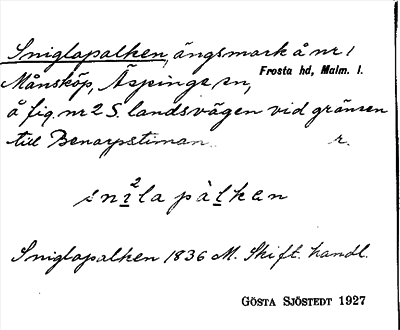 Sniglapalken, ängsmark å nr 1
Månsköp, Äspinge sn, Frosta hd, Malm. l.
å fig. nr 2 S. landsvägen vid gränsen
till Benarpstiman r.
snị²la pàlken
Sniglapalken 1836 M. Skift. handl.
GÖSTA SJÖSTEDT 1927